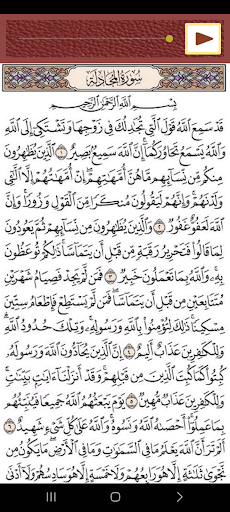 سُورَةُ المُجَادلَةِ
بِسْمِ اللَّهِ الرَّحْمَٰنِ الرَّحِيمِ
قَدْ سَمِعَ اللَّهُ قَوْلَ الَّتِي تُجَادِلُكَ فِي زَوْجِهَا وَتَشْتَكِي إِلَى اللَّهِ
وَاللَّهُ يَسْمَعُ تَحَاوُرَكُمَا إِنَّ اللَّهَ سَمِيعٌ بَصِيرٌ ١ الَّذِينَ يُظَاهِرُونَ
مِنكُم مِّن نِّسَائِهِم مَّا هُنَّ أُمَّهَاتِهِمْ إِنْ أُمَّهَاتُهُمْ إِلَّا الَّٰئِي
وَلَدْنَهُمْ وَإِنَّهُمْ لَيَقُولُونَ مُنكَرًا مِّنَ الْقَوْلِ وَزُورًا وَإِنَّ
اللَّهَ لَعَفُوٌّ غَفُورٌ ٢ وَالَّذِينَ يُظَاهِرُونَ مِن نِّسَائِهِمْ ثُمَّ يَعُودُونَ
لِمَا قَالُوا فَتَحْرِيرُ رَقَبَةٍ مِّن قَبْلِ أَن يَتَمَاسَّا ذَٰلِكُمْ تُوعَظُونَ
بِهِ وَاللَّهُ بِمَا تَعْمَلُونَ خَبِيرٌ ٣ فَمَن لَّمْ يَجِدْ فَصِيَامُ شَهْرَيْنِ
مُتَتَابِعَيْنِ مِن قَبْلِ أَن يَتَمَاسَّا فَمَن لَّمْ يَسْتَطِعْ فَإِطْعَامُ سِتِّينَ
مِسْكِينًا ذَٰلِكَ لِتُؤْمِنُوا بِاللَّهِ وَرَسُولِهِ وَتِلْكَ حُدُودُ اللَّهِ
وَلِلْكَافِرِينَ عَذَابٌ أَلِيمٌ ٤ إِنَّ الَّذِينَ يُحَادُّونَ اللَّهَ وَرَسُولَهُ
كُبِتُوا كَمَا كُبِتَ الَّذِينَ مِن قَبْلِهِمْ وَقَدْ أَنزَلْنَا آيَاتٍ بَيِّنَاتٍ
وَلِلْكَافِرِينَ عَذَابٌ مُّهِينٌ ٥ يَوْمَ يَبْعَثُهُمُ اللَّهُ جَمِيعًا فَيُنَبِّئُهُم
بِمَا عَمِلُوا أَحْصَاهُ اللَّهُ وَنَسُوهُ وَاللَّهُ عَلَىٰ كُلِّ شَيْءٍ شَهِيدٌ ٦
أَلَمْ تَرَ أَنَّ اللَّهَ يَعْلَمُ مَا فِي السَّمَاوَاتِ وَمَا فِي الْأَرْضِ مَا يَكُونُ مِن
نَّجْوَىٰ ثَلَاثَةٍ إِلَّا هُوَ رَابِعُهُمْ وَلَا خَمْسَةٍ إِلَّا هُوَ سَادِسُهُمْ وَلَا